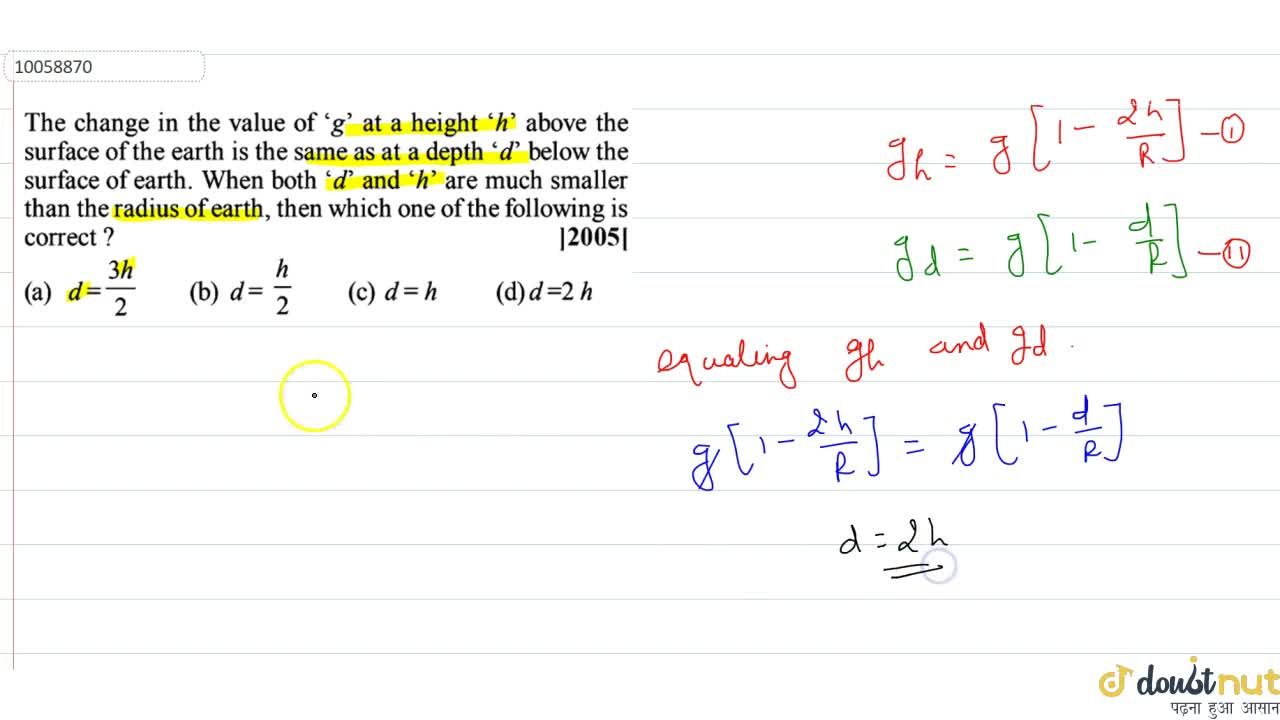 10058870
The change in the value of ‘g’ at a height ‘h’ above the
surface of the earth is the same as at a depth ‘d’ below the
surface of earth. When both ‘d’ and ‘h’ are much smaller
than the radius of earth, then which one of the following is
correct ? |2005|
(a) d = 3h/2 (b) d = h/2 (c) d = h (d) d =2 h
gh = g [1 - 2h/R] - ①
gd = g [1 - d/R] - ⑪
equaling gh and gd .
g [1 - 2h/R] = g [1 - d/R]
d = 2h
doubtnut
पढ़ना हुआ आसान